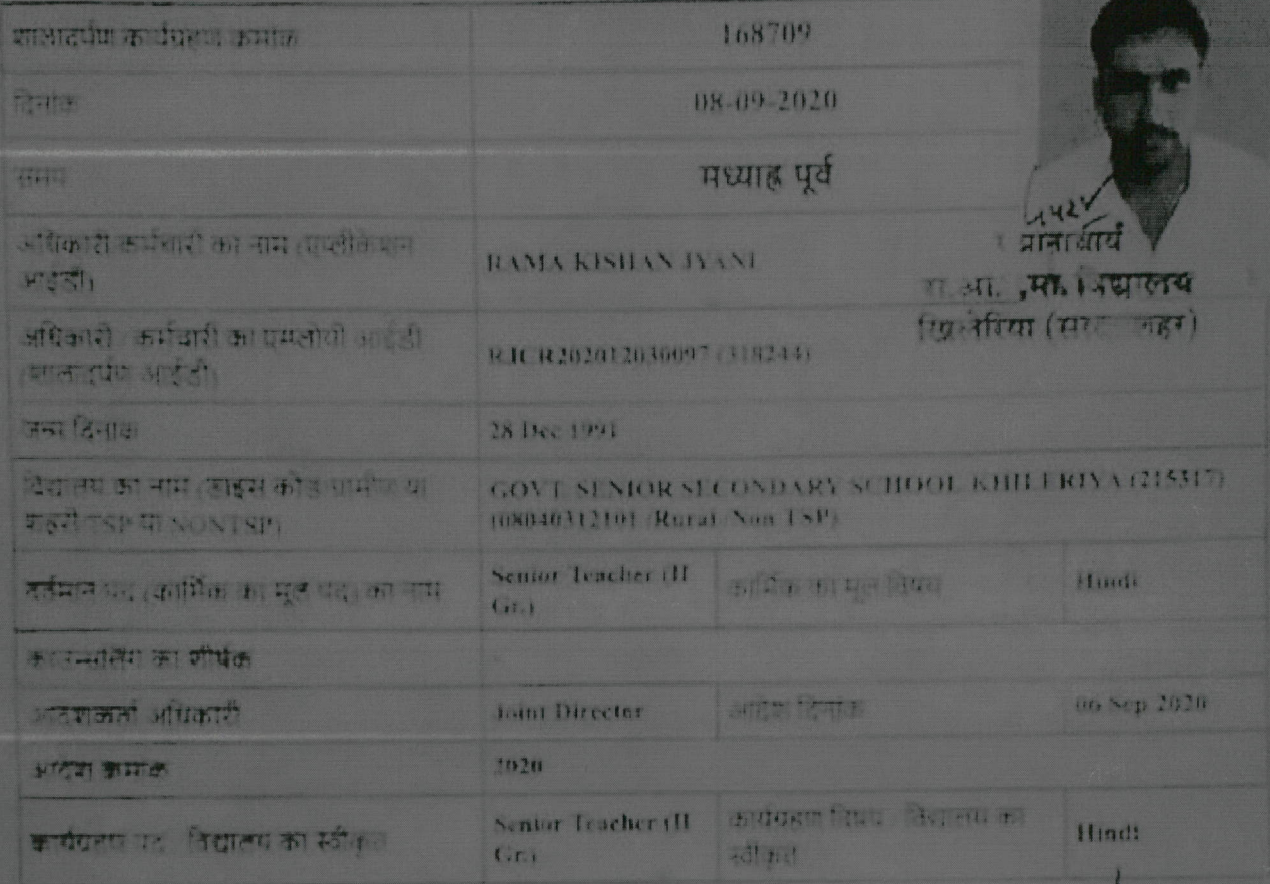 शालादर्पण कार्यग्रहण क्रमांक 168709
दिनांक 08-09-2020
समय मध्याह्न पूर्व
अधिकारी/कर्मचारी का नाम (एप्लीकेशन
आईडी) RAMA KISHAN JYANI
प्रधानाचार्य
रा.आ. मा. विद्यालय
अधिकारी / कर्मचारी का एम्प्लोयी आईडी
(शालादर्पण आईडी) RJCR202012030097 (318244)
जन्म दिनांक 28 Dec 1991
विद्यालय का नाम (डाइस कोड/ग्रामीण या
शहरी/TSP या NONTSP) GOVT. SENIOR SECONDARY SCHOOL KHILERIYA (215317)
(08040312101 (Rural /Non TSP)
वर्तमान पद (कार्मिक का मूल पद) का नाम Senior Teacher (II
Gr.) कार्मिक का मूल विषय Hindi
काउन्सलिंग का शीर्षक -
आदेशकर्ता अधिकारी Joint Director आदेश दिनांक 06 Sep 2020
आदेश क्रमांक 2020
कार्यग्रहण पद / विद्यालय का स्वीकृत Senior Teacher (II
Gr.) कार्यग्रहण विषय / विद्यालय का
स्वीकृत Hindi